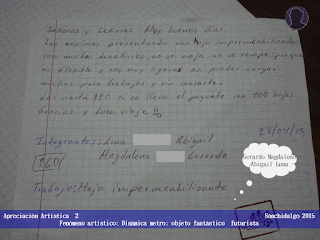 Señoras y señores Muy buenos días
Les venimos presentando una hoja impermeabilizada
con muchos beneficios, no se moja, no se rompe, porque
es flexible y son muy ligeras así puedes cargar
muchas para trabajos y sin cansarte.
Les cuesta $50 si se lleva el paquete con 200 hojas
Gracias y buen viaje !!
28/04/15
Integrantes: Luna Abigail
Magdaleno Gerardo
Trabajo: Hoja impermeabilizante
Gerardo Magdaleno
Abigail Luna
Apreciación Artística 2
Sonchidalgo 2015
Fenómeno artístico: Dinámica metro: objeto fantástico futurista